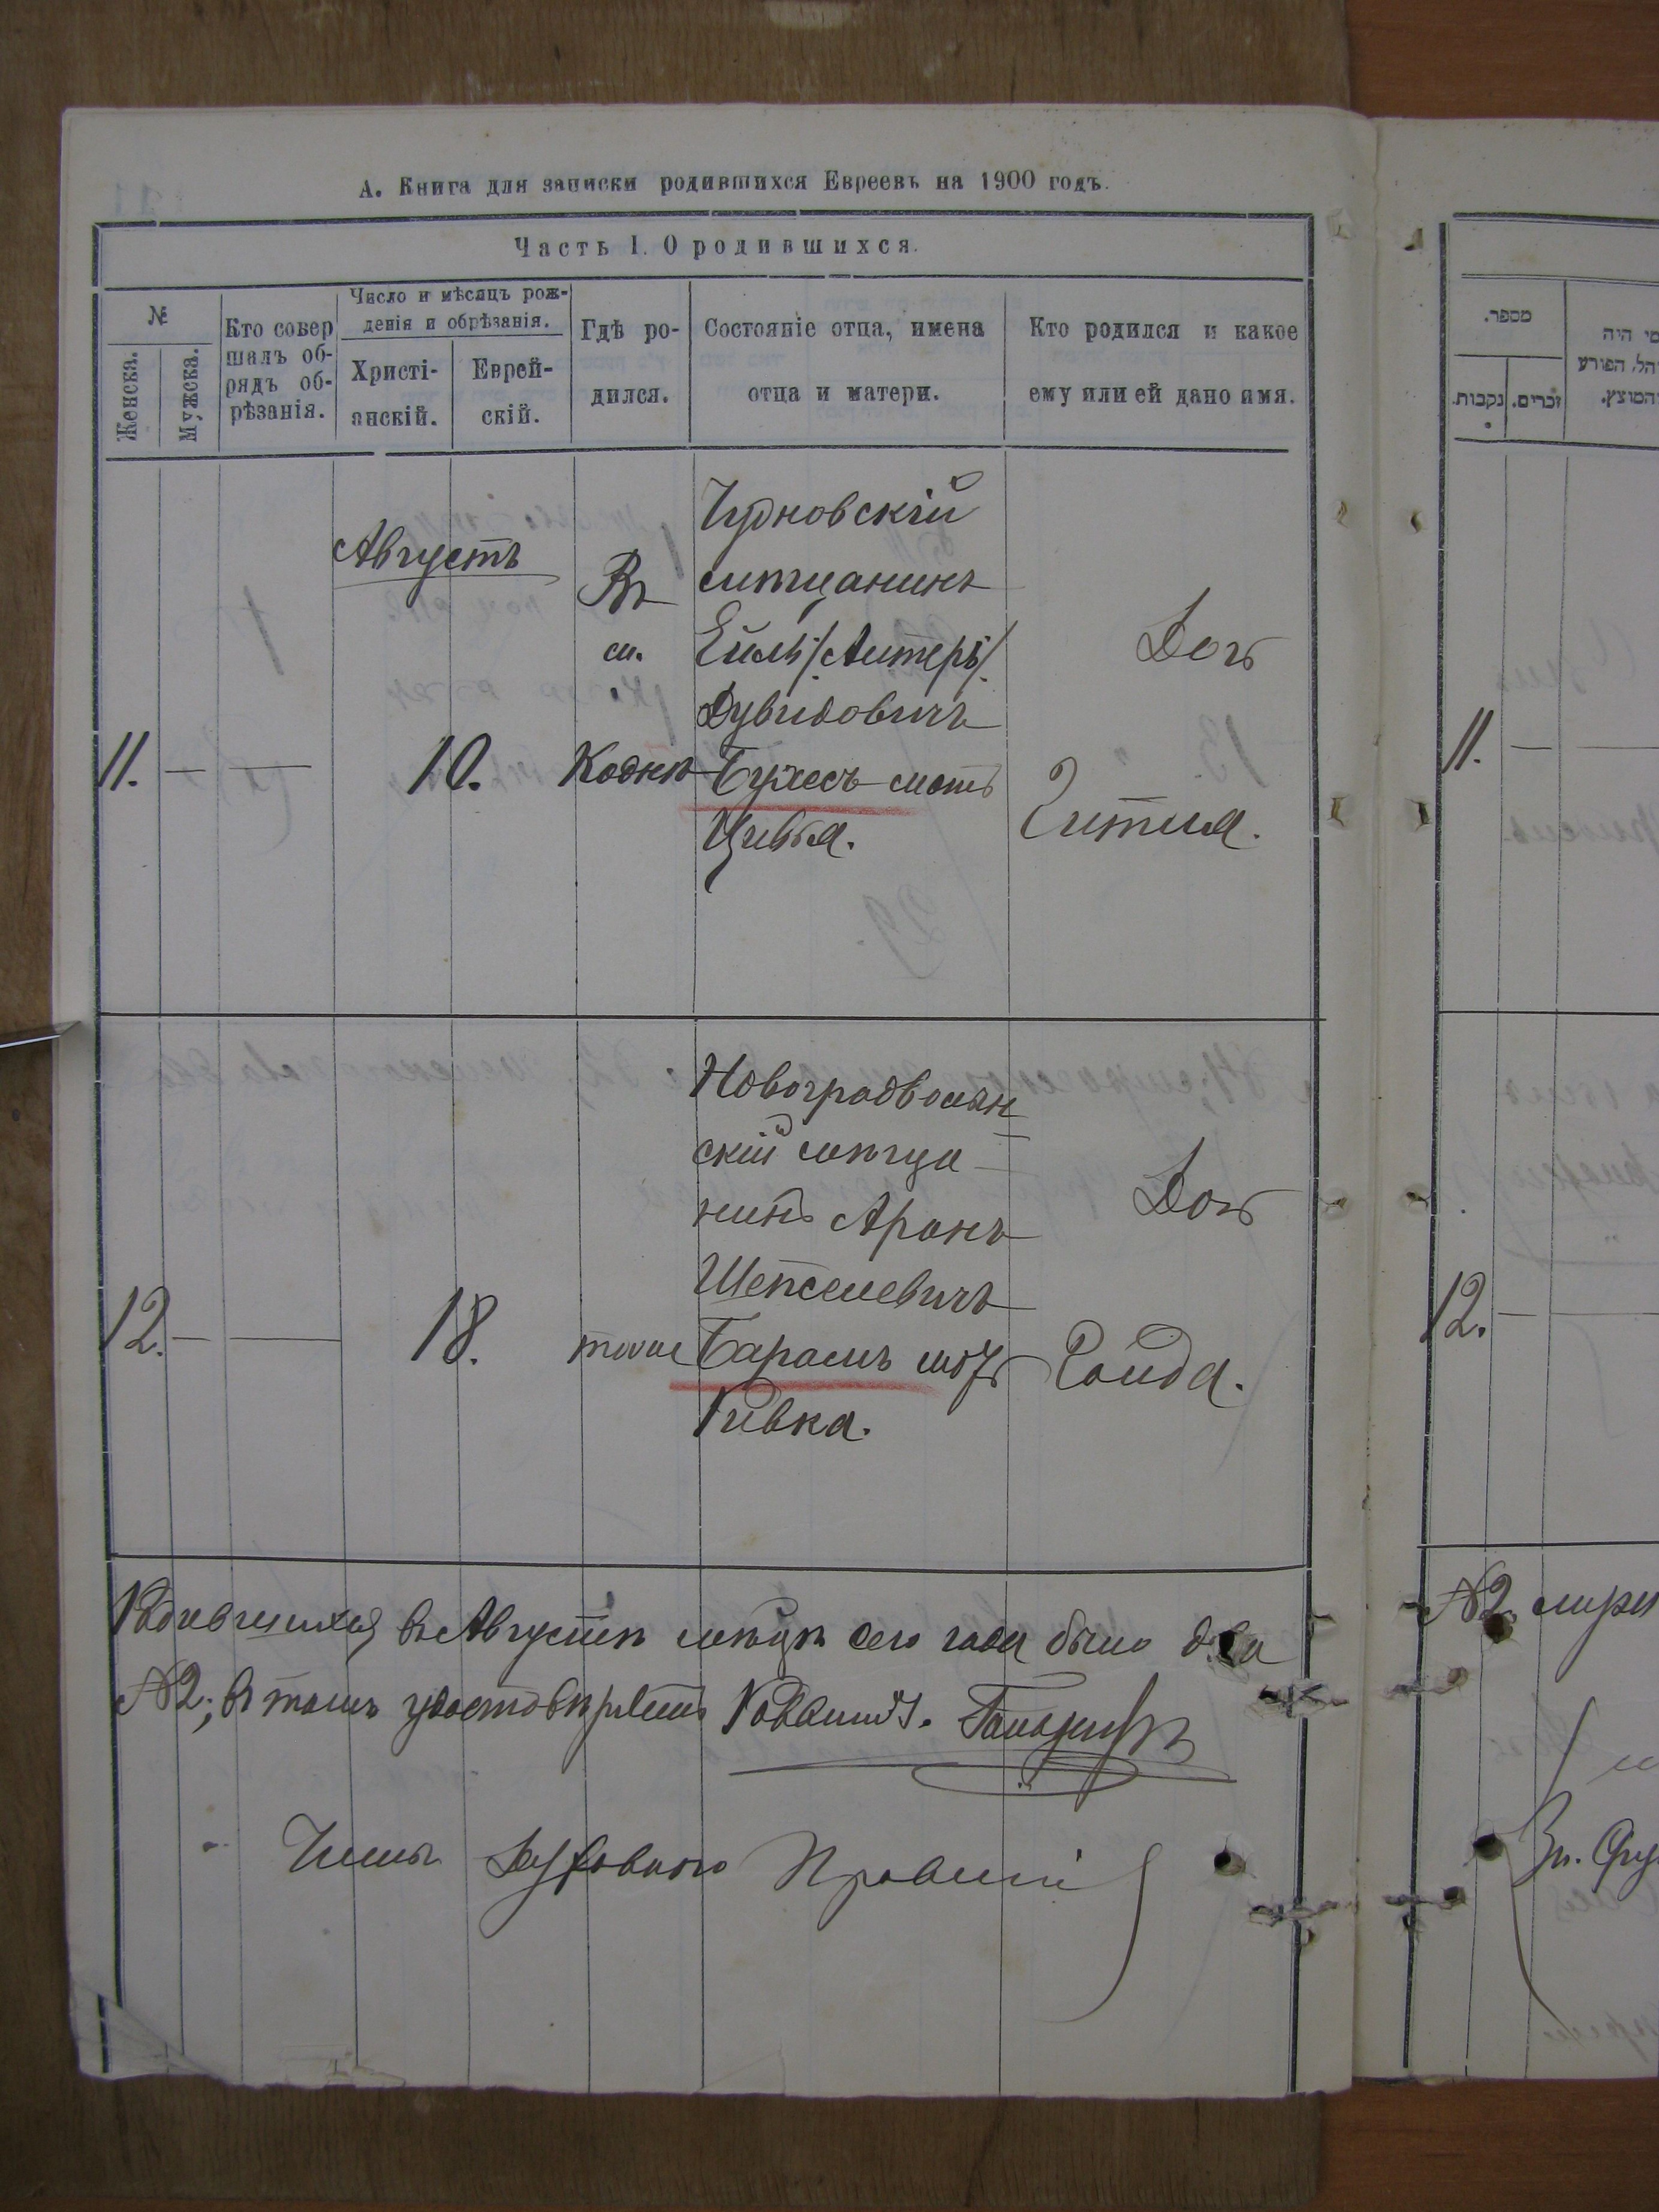 А. Книга для записки родившихся Евреевъ на 1900 годъ.
Часть I. О родившихся.
№
Женска.
Мужска.
Кто совер
шалъ об-
рядъ об-
рѣзанія.
Число и мѣсяцъ рож-
денія и обрѣзанія.
Христі-
анскій.
Еврей-
скій.
Гдѣ ро-
дился.
Состояніе отца, имена
отца и матери.
Кто родился и какое
ему или ей дано имя.
11.
—
—
Августъ
10.
Въ
м.
Коднѣ
Чудновскій
мѣщанинъ
Ейль /Алтеръ/
Дувидовичъ
Бухесъ мать
Цивья.
Дочь
Гитля.
12.
—
—
18.
тоже
Новоградволын
скій мѣща
нинъ Аронъ
Шепселевичъ
Барамъ мать
Ривка.
Дочь
Райда.
Родившихся въ Августѣ мѣсяцѣ сего года было два
№2; въ томъ удостовѣряетъ Раввинъ.
Члены Духовнаго Правлені
מספר.
נקבות.
זכרים.
מי היה
הפורע
11.
—
12.
—
№2